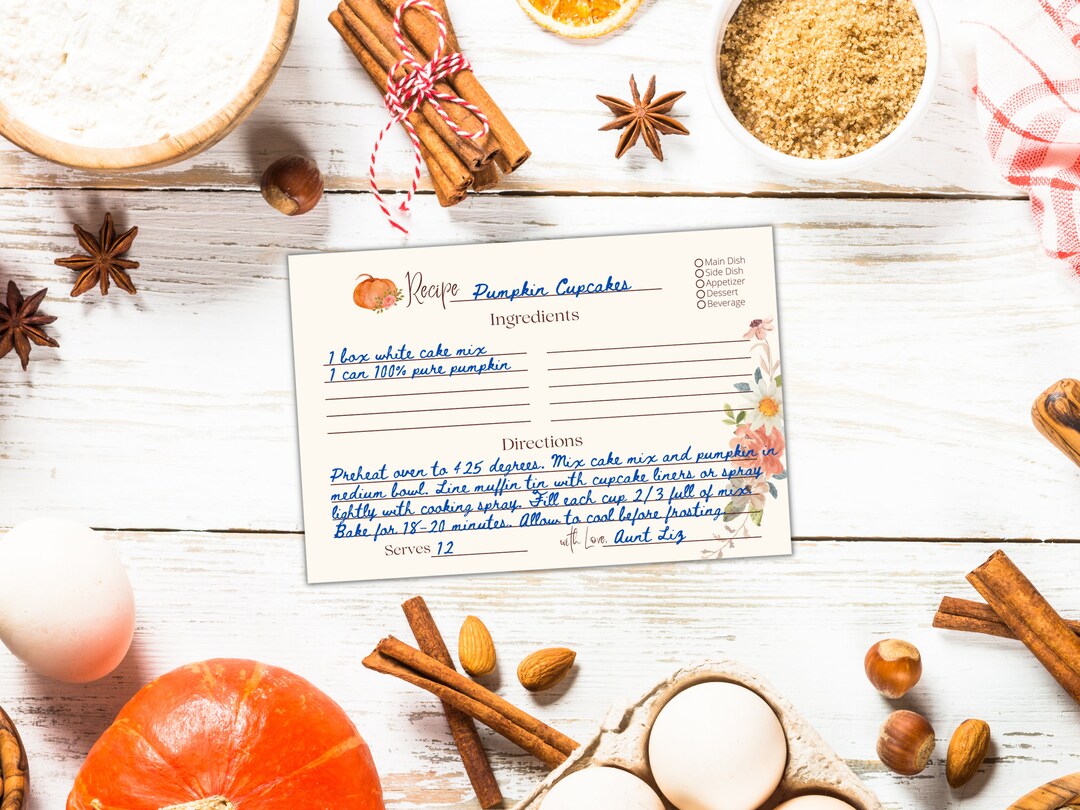 Recipe Pumpkin Cupcakes
Main Dish
Side Dish
Appetizer
Dessert
Beverage
Ingredients
1 box white cake mix
1 can 100% pure pumpkin
Directions
Preheat oven to 425 degrees. Mix cake mix and pumpkin in
medium bowl. Line muffin tin with cupcake liners or spray
lightly with cooking spray. Fill each cup 2/3 full of mix.
Bake for 18-20 minutes. Allow to cool before frosting.
Serves 12
with Love, Aunt Liz